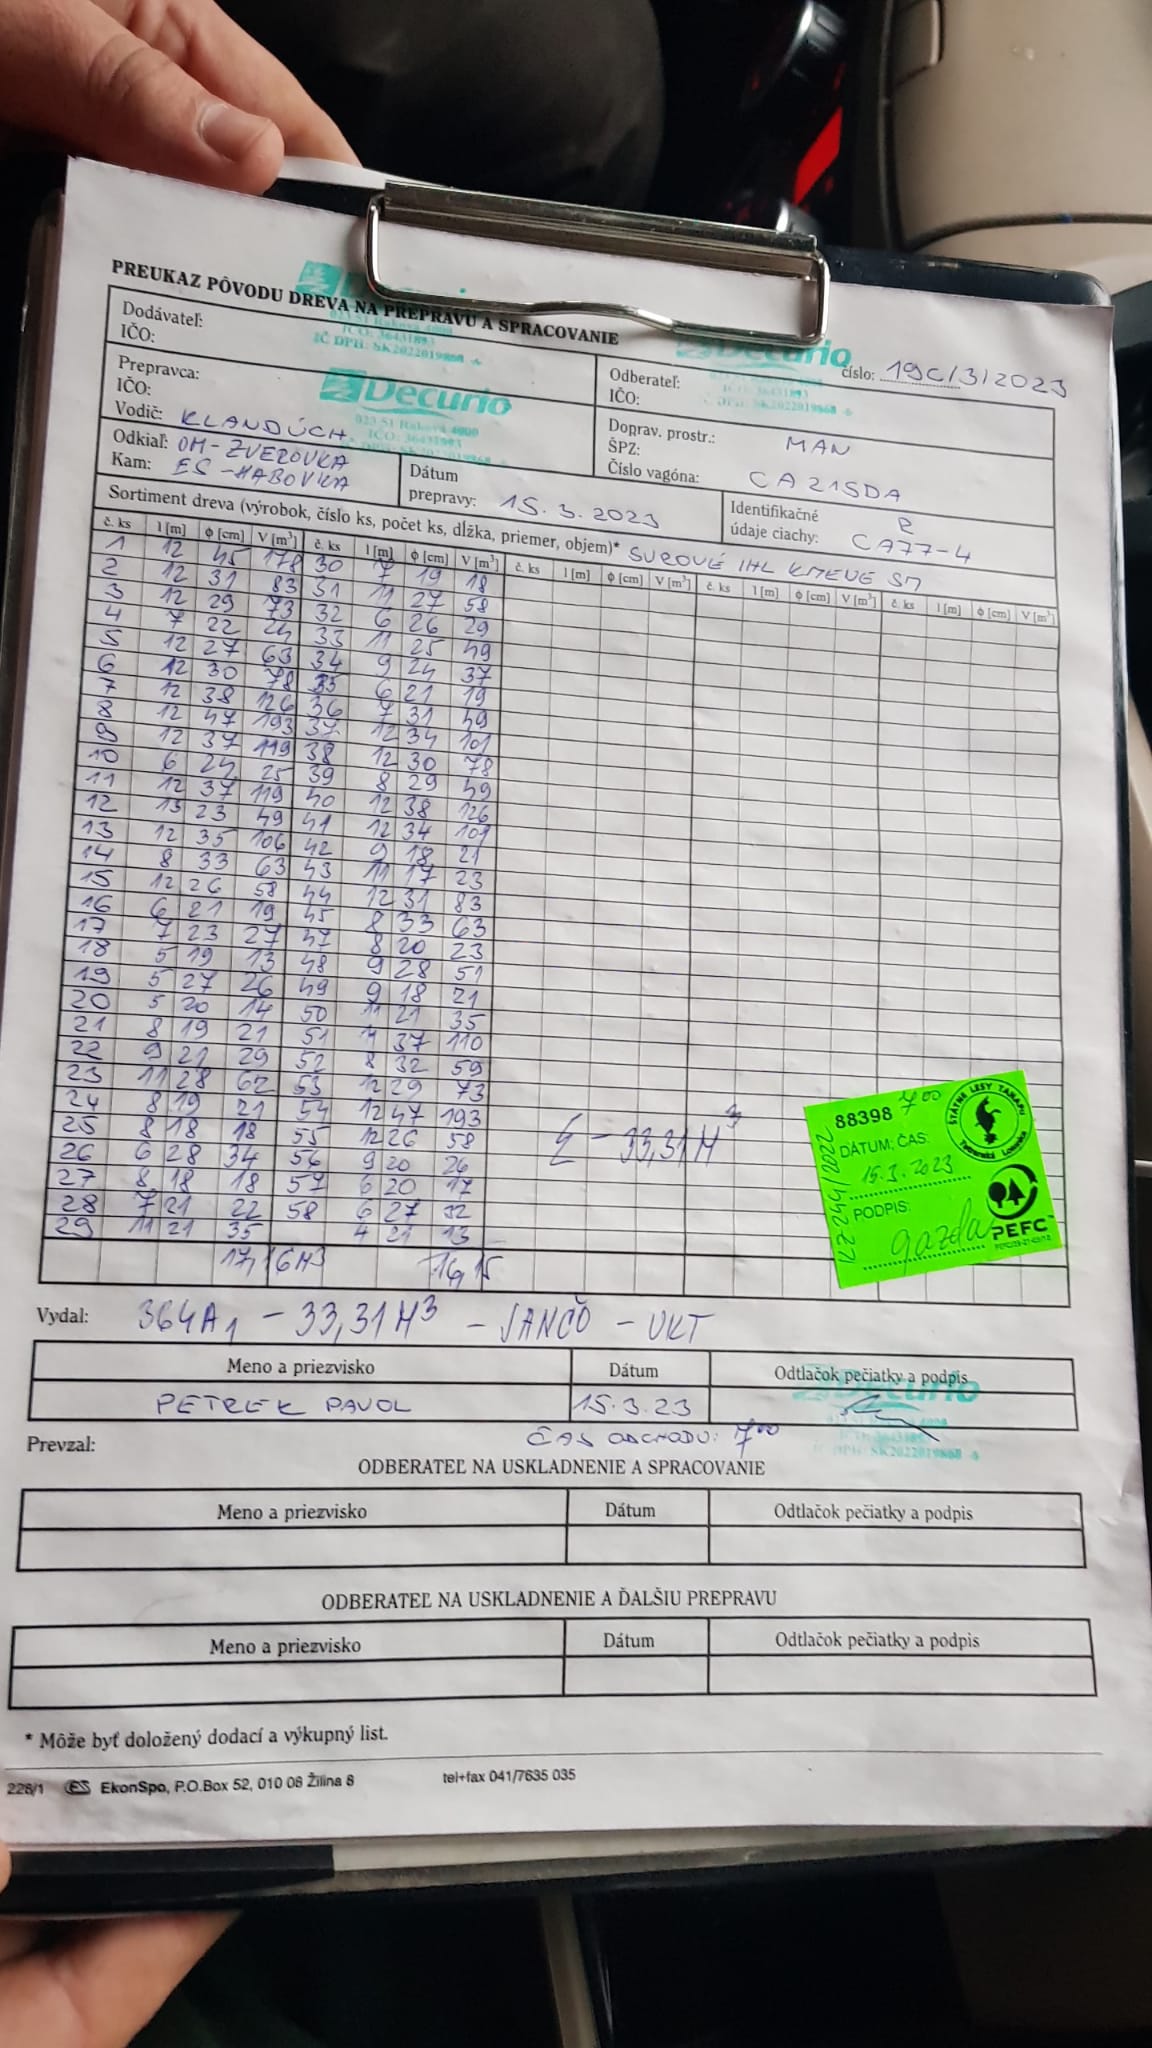 PREUKAZ PÔVODU DREVA NA PREPRAVU A SPRACOVANIE
Decurio
023 51 Raková 4000
IČO: 36431893
IČ DPH: SK2022019868
číslo: 19C/3/2023
Dodávateľ:
IČO:
Odberateľ:
IČO:
Decurio
Prepravca:
IČO:
Decurio
023 51 Raková 4000
IČO: 36431893
Vodič: KLANDÚCH
Doprav. prostr.: MAN
ŠPZ:
Číslo vagóna: CA215DA
Odkiaľ: OM-ZVEROVKA
Kam: ES-HABOVKA
Dátum prepravy: 15.3.2023
Identifikačné údaje ciachy: CA77-4
Sortiment dreva (výrobok, číslo ks, počet ks, dĺžka, priemer, objem)* SUROVÉ IHL KMENE SM
č. ks l [m] ϕ [cm] V [m³] č. ks l [m] ϕ [cm] V [m³] č. ks l [m] ϕ [cm] V [m³] č. ks l [m] ϕ [cm] V [m³] č. ks l [m] ϕ [cm] V [m³]
1 12 45 178 30 7 19 18
2 12 31 83 31 11 27 58
3 12 29 73 32 6 26 29
4 7 22 24 33 11 25 49
5 12 27 63 34 9 24 37
6 12 30 78 35 6 21 19
7 12 38 126 36 7 31 49
8 12 47 193 37 12 34 101
9 12 37 119 38 12 30 78
10 6 24 25 39 8 29 49
11 12 37 119 40 12 38 126
12 13 23 49 41 12 34 101
13 12 35 106 42 9 18 21
14 8 33 63 43 11 17 23
15 12 26 58 44 12 31 83
16 6 21 19 45 8 33 63
17 7 23 27 47 8 20 23
18 5 19 13 48 9 28 51
19 5 27 26 49 9 18 21
20 5 20 14 50 11 21 35
21 8 19 21 51 37 110
22 9 21 29 52 8 32 59
23 11 28 62 53 12 29 73
24 8 19 21 54 12 47 193
25 8 18 18 55 12 26 58
26 6 28 34 56 9 20 26
27 8 18 18 57 6 20 17
28 7 21 22 58 6 27 32
29 11 21 35 4 21 13
17,16M3 16,15
Σ - 33,31M3
88398 7⁰⁰
DÁTUM; ČAS:
15.3.2023
PODPIS:
gazda
ŠTÁTNE LESY TANAPU
Tatranská Lomnica
PEFC
Vydal: 364A1 - 33,31M3 - JANČO - UKT
Meno a priezvisko Dátum Odtlačok pečiatky a podpis
PETREK PAVOL 15.3.23
Decurio
IČ DPH: SK2022019868
ČAS ODCHODU: 7⁰⁰
Prevzal:
ODBERATEĽ NA USKLADNENIE A SPRACOVANIE
Meno a priezvisko Dátum Odtlačok pečiatky a podpis
ODBERATEĽ NA USKLADNENIE A ĎALŠIU PREPRAVU
Meno a priezvisko Dátum Odtlačok pečiatky a podpis
* Môže byť doložený dodací a výkupný list.
226/1 ES EkonSpo, P.O.Box 52, 010 08 Žilina 8 tel+fax 041/7635 035